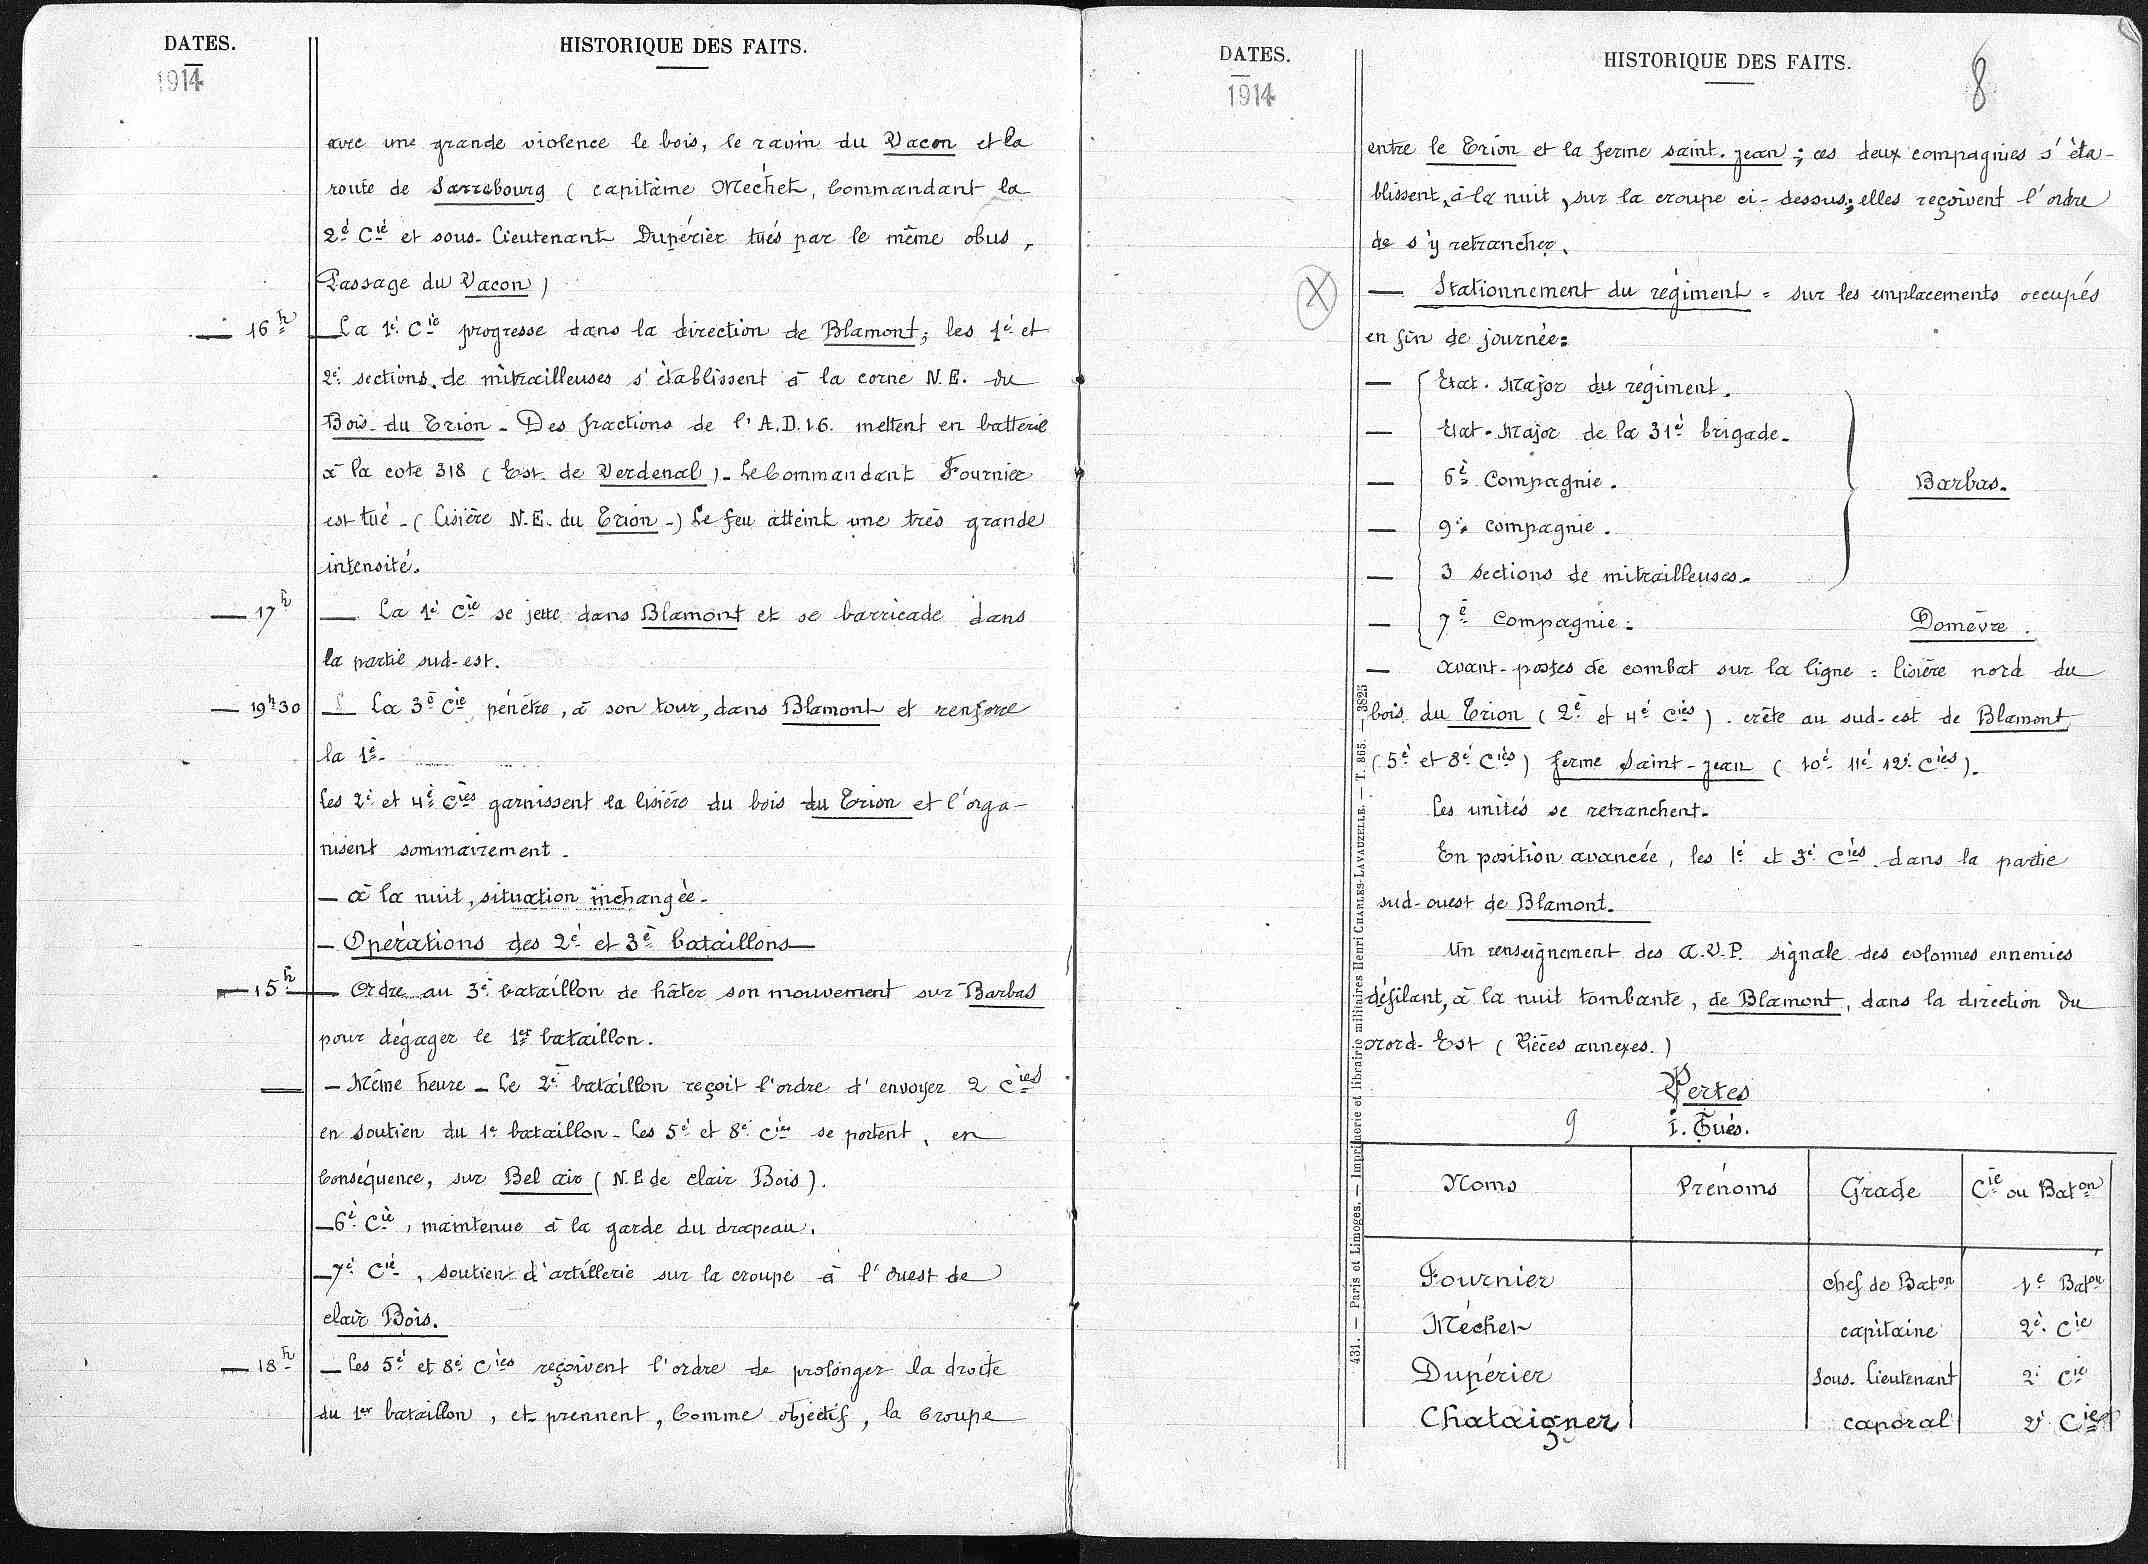 DATES.
1914
HISTORIQUE DES FAITS.
avec une grande violence le bois, le ravin du Vacon et la
route de Sarrebourg (capitaine Méchet, Commandant la
2è Cie et sous-lieutenant Dupérier tués par le même obus,
Passage du Vacon)
— 16h — La 1è Cie progresse dans la direction de Blamont; les 1è et
2è sections de mitrailleuses s'établissent à la corne N.E. du
Bois du Trion - Des fractions de l'A.D.16. mettent en batterie
à la cote 318 (Est de Verdenal) - Le Commandant Fournier
est tué - (lisière N.E. du Trion -) Le feu atteint une très grande
intensité.
— 17h — La 1è Cie se jette dans Blamont et se barricade dans
la partie sud-est.
— 19h30 — La 3è Cie pénètre, à son tour, dans Blamont et renforce
la 1è.
Les 2è et 4è Cies garnissent la lisière du bois du Trion et l'orga-
nisent sommairement.
— à la nuit, situation inchangée.
— Opérations des 2è et 3è bataillons —
— 15h — Ordre au 3è bataillon de hâter son mouvement sur Barbas
pour dégager le 1er bataillon.
— — Même heure - Le 2è bataillon reçoit l'ordre d'envoyer 2 Cies
en soutien du 1e bataillon - Les 5è et 8è Cies se portent, en
Conséquence, sur Bel air (N.E de clair Bois).
— 6è Cie, maintenue à la garde du drapeau.
— 7è Cie, soutient d'artillerie sur la croupe à l'ouest de
clair Bois.
— 18h — Les 5è et 8è Cies reçoivent l'ordre de prolonger la droite
du 1er bataillon, et prennent, Comme objectif, la Croupe
DATES.
1914
HISTORIQUE DES FAITS.
8
entre le Trion et la ferme saint-jean; ces deux compagnies s'éta-
blissent, à la nuit, sur la croupe ci-dessus; elles reçoivent l'ordre
de s'y retrancher.
X — Stationnement du régiment = sur les emplacements occupés
en fin de journée:
— Etat-Major du régiment.
— Etat-Major de la 31è brigade.
— 6è Compagnie. Barbas.
— 9è compagnie.
— 3 sections de mitrailleuses.
— 7è Compagnie: Domèvre.
— avant-postes de combat sur la ligne = lisière nord du
bois du Trion (2è et 4è Cies). crête au sud-est de Blamont
(5è et 8è Cies) ferme Saint-jean (10è 11è 12è Cies).
Les unités se retranchent.
En position avancée, les 1è et 3è Cies dans la partie
sud-ouest de Blamont.
Un renseignement des A.V.P. signale des colonnes ennemies
défilant, à la nuit tombante, de Blamont, dans la direction du
Nord-Est (Pièces annexes.)
Pertes
9 I. Tués.
Noms Prénoms Grade Cie ou Baton
Fournier chef de Baton 1e Baton
Méchet capitaine 2è Cie
Dupérier Sous-lieutenant 2è Cie
Chataigner caporal 2è Cie
431. — Paris et Limoges. — Imprimerie et librairie militaires Henri CHARLES-LAVAUZELLE. — T. 865. — 3825